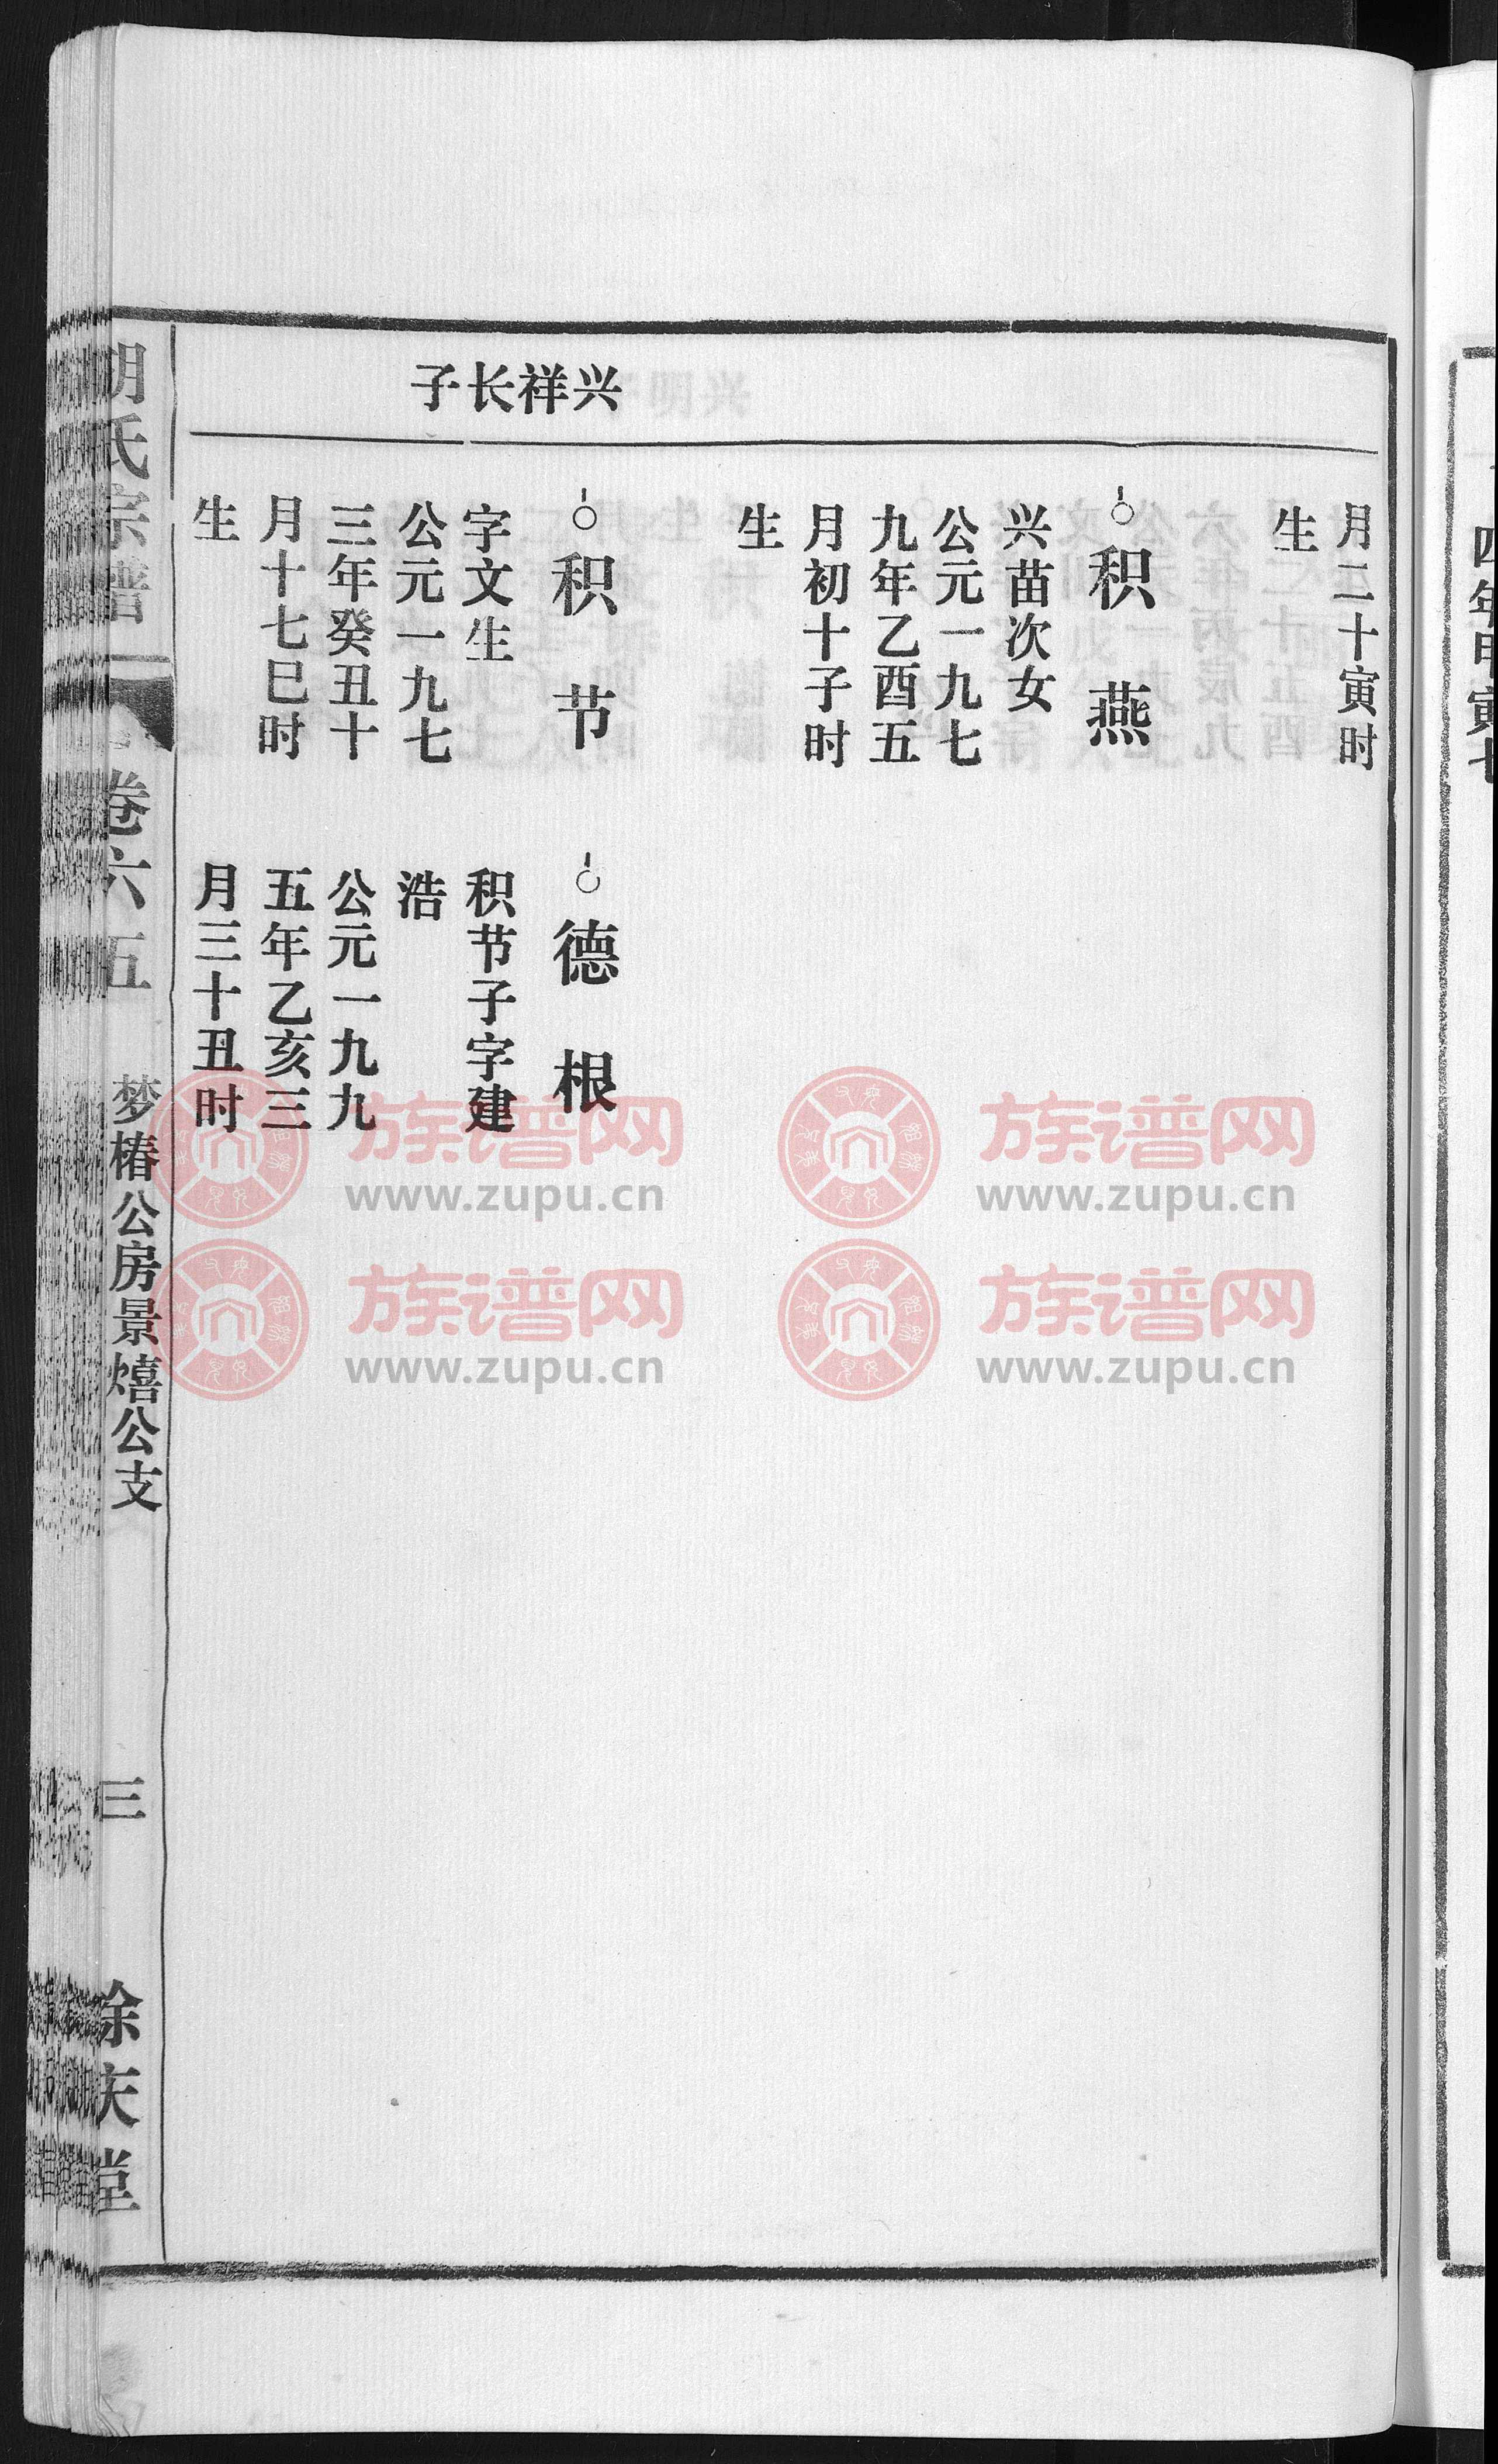 兴祥长子
月二十寅时
生
积燕
兴苗次女
公元一九七
九年乙酉五
月初十子时
生
积节
字文生
公元一九七
三年癸丑十
月十七巳时
生
德根
积节子字建
浩
公元一九九
五年乙亥三
月三十丑时
胡氏宗谱
卷六五
梦椿公房景熺公支
三
馀庆堂
四年甲寅七
族谱网
www.zupu.cn
族谱网
www.zupu.cn
族谱网
www.zupu.cn
族谱网
www.zupu.cn